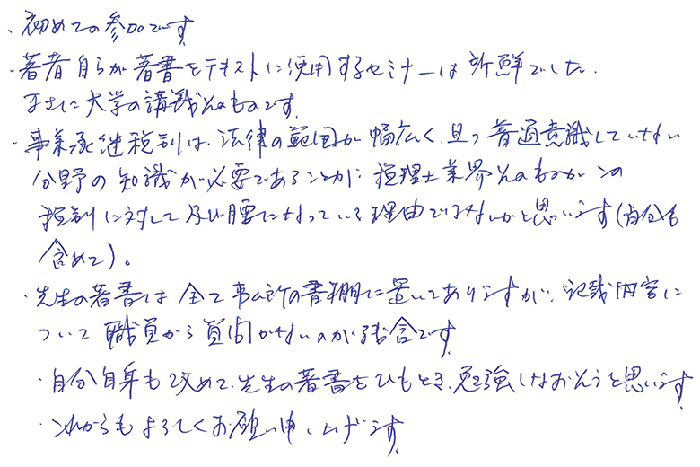 ・初めての参加です
・著者自らが著書をテキストに使用するセミナーは新鮮でした。
まさに大学の講義そのものです。
・事業承継税制は、法律の範囲が幅広く、且つ普通意識していない
分野の知識が必要であることが、税理士業界そのものがこの
税制に対して及び腰になっている理由ではないかと思います(自分も
含めて)。
・先生の著書は全て事ム所の書棚に置いてありますが、記載内容に
ついて職員から質問がないのが残念です。
・自分自身も改めて、先生の著書をひもとき、勉強しなおそうと思います
・これからもよろしくお願い申し上げます